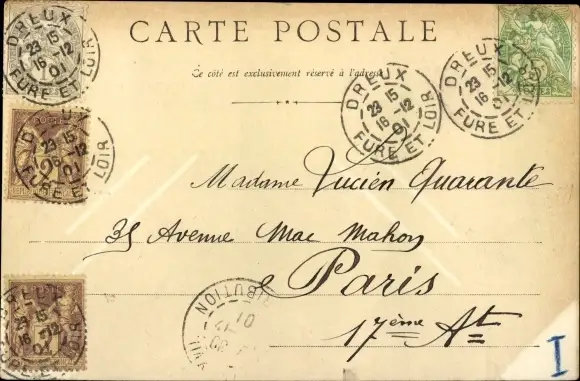 CARTE POSTALE
Ce côté est exclusivement réservé à l'adresse
DREUX
23 15
16-12
01
EURE ET LOIR
DREUX
23 15
16 12
01
EURE ET LOIR
DREUX
23 15
16-12
01
EURE ET LOIR
DREUX
23 15
16-12
01
EURE ET LOIR
DREUX
23 15
16 12
01
Madame Lucien Quarante
35 Avenue Mac Mahon
Paris
17ème At
IBUTION
01
I